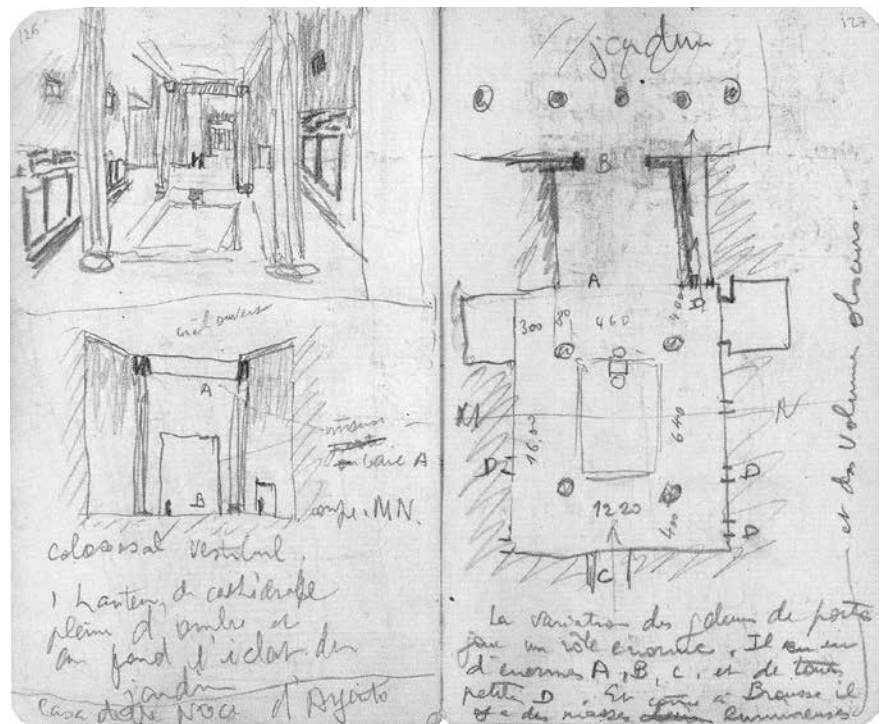 126
ciel ouvert
A
baie A
B
coupe MN.
colossal vestibul.
1 Hauteur de cathédrale
pleine d'ombre et
au fond l'éclat du
jardin
Casa delle Noce d'Argento
127
jardin
B
A
D
300
80
460
400
M
N
16.03
640
D
D
1220
400
D
C
La variation des grdeurs de porte
joue un rôle énorme. Il en est
d'énormes A, B, C, et de toutes
petites D. Et comme à Brousse il
y a des masses lumineuses
et des Volumes obscurs.